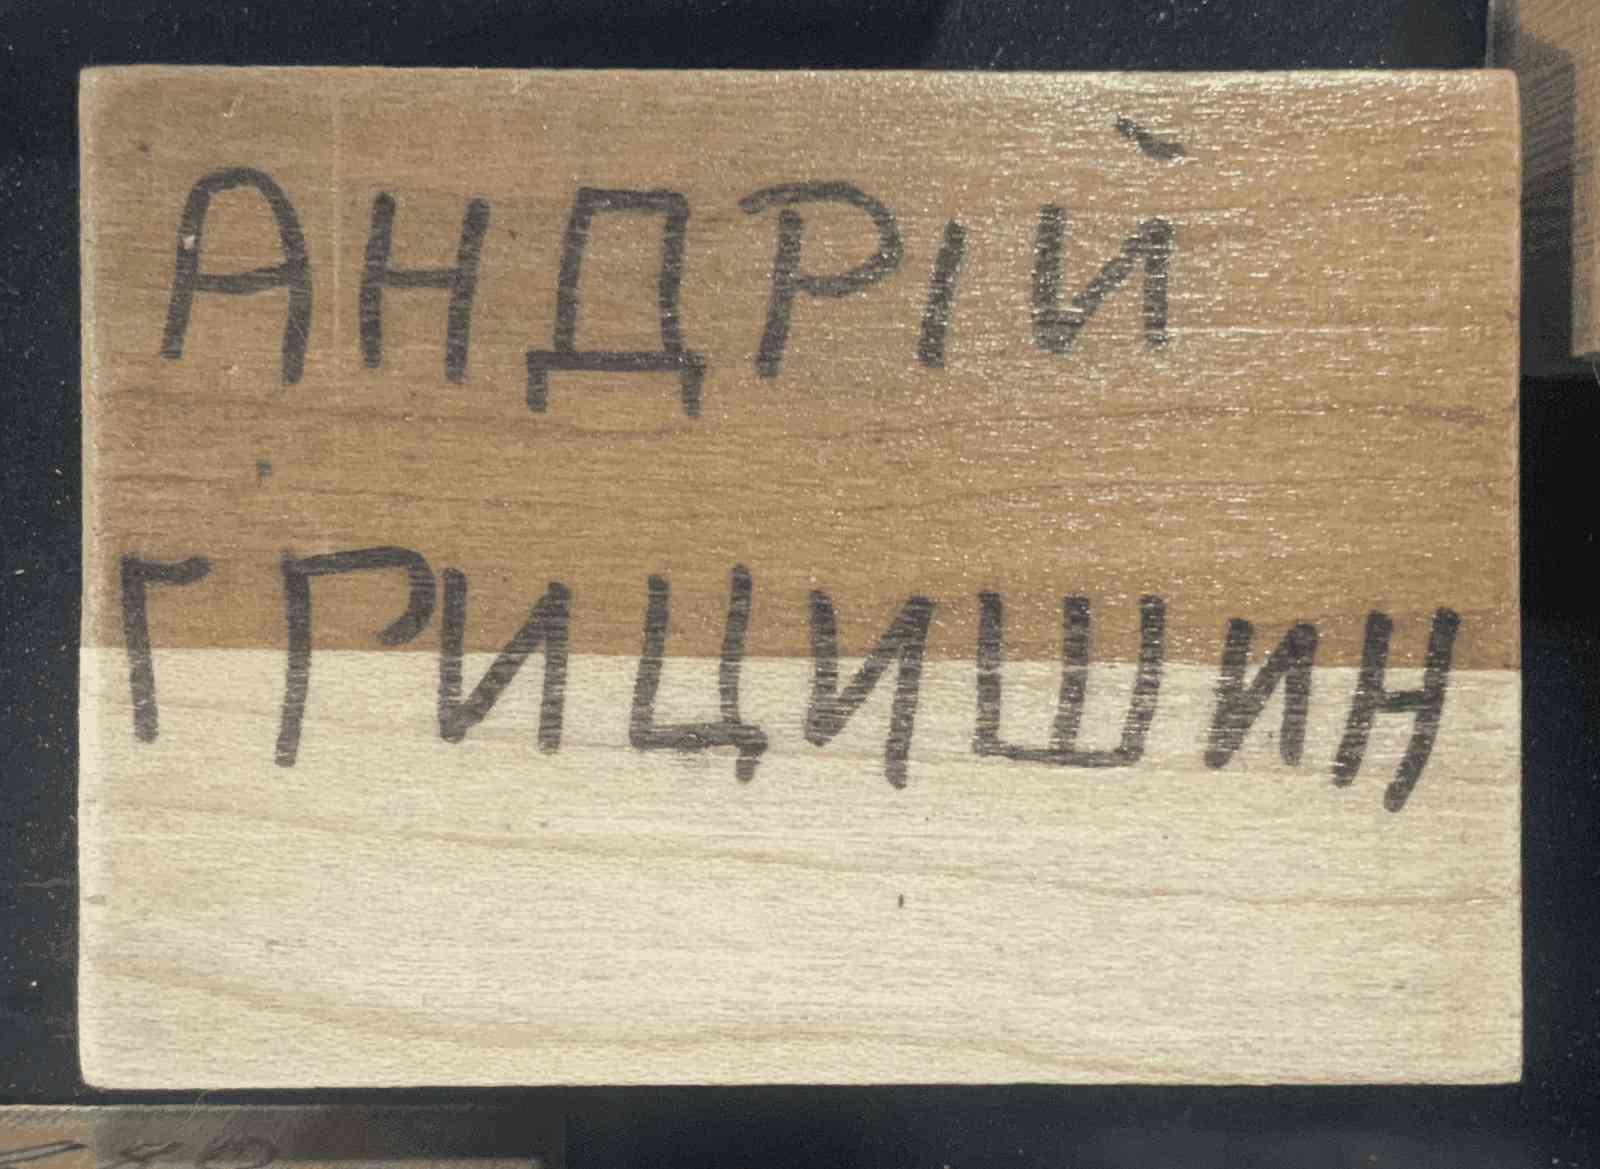 АНДРІЙ
ГРИЦИШИН